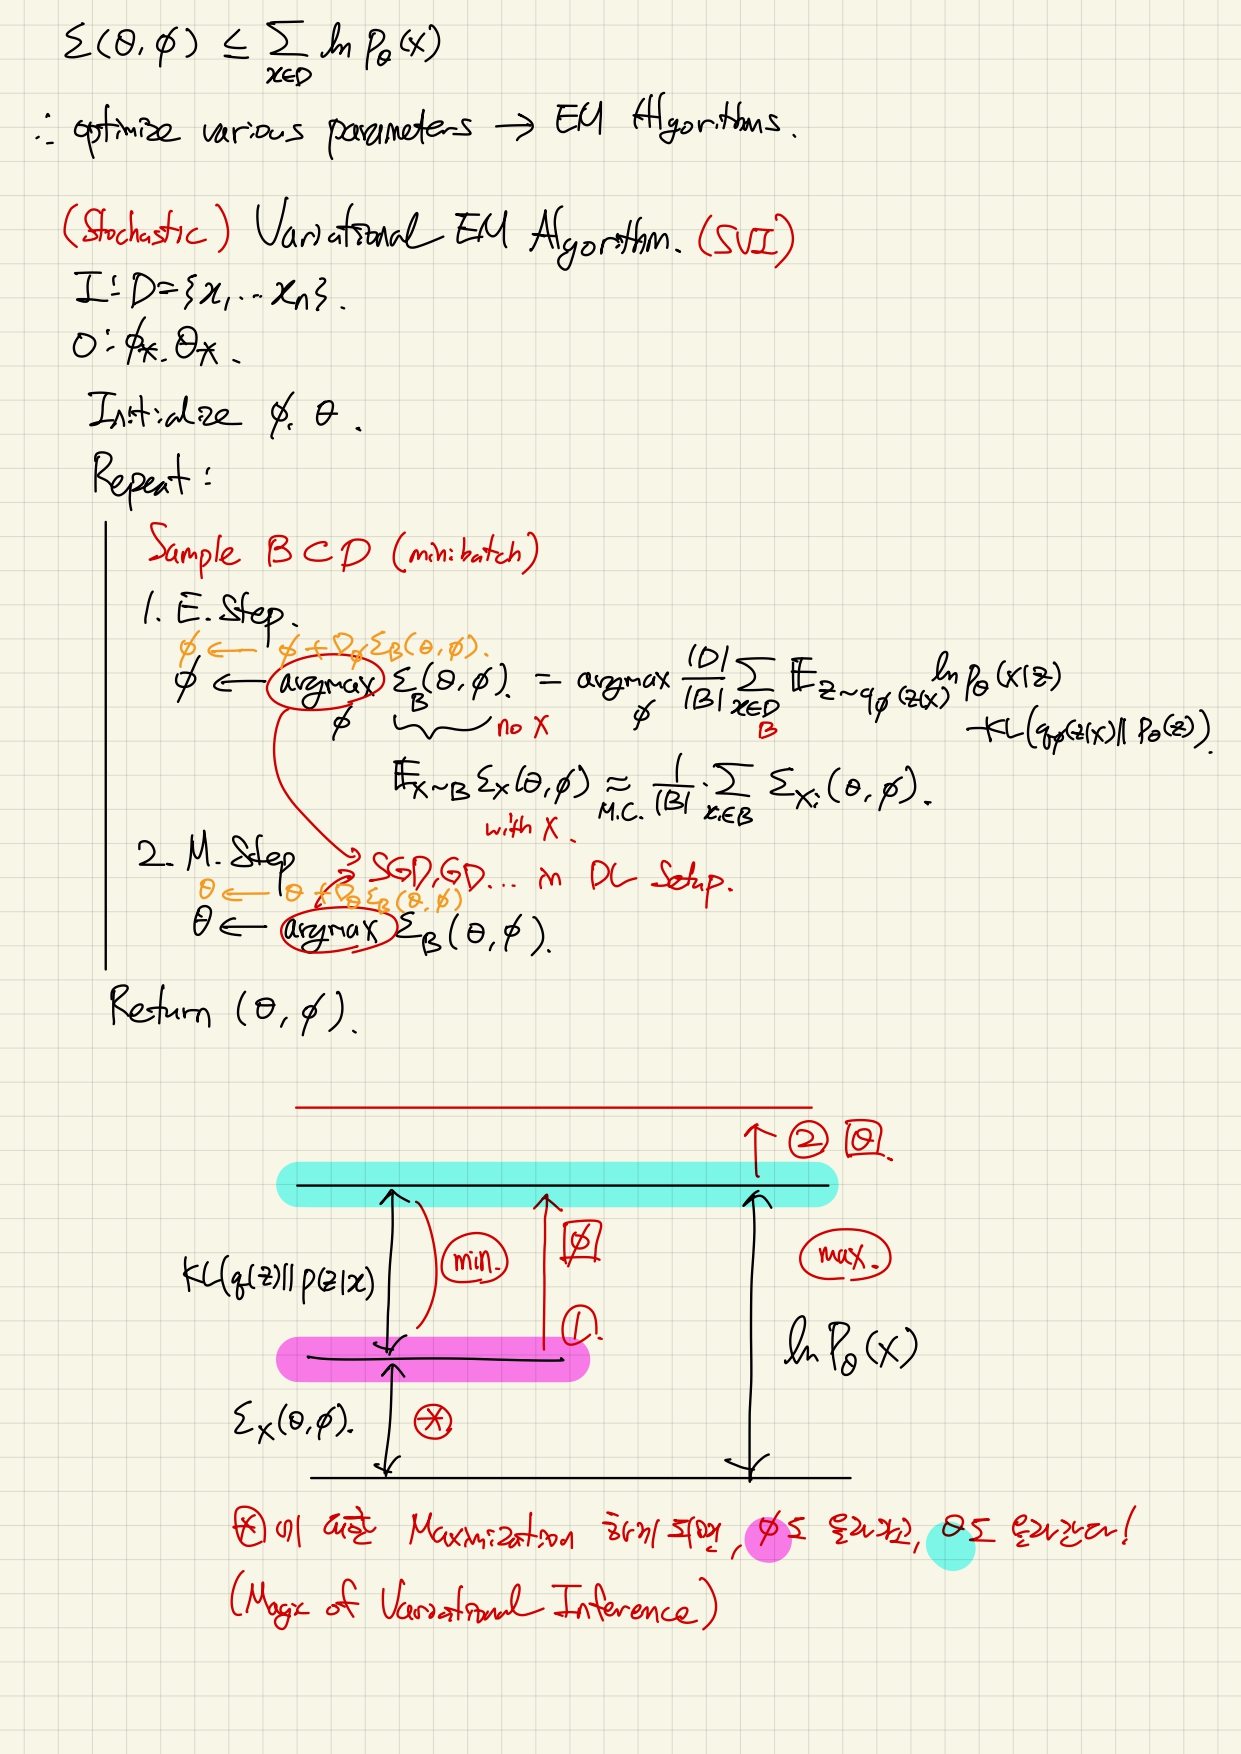 Σ(θ, φ) ≤ Σ_{x∈D} ln P_θ(x)
∴ optimize various parameters → EM Algorithms.
(Stochastic) Variational EM Algorithm. (SVI)
I: D={x₁ ... x_n}.
O: φ*. θ*.
Initialize φ. θ.
Repeat:
Sample B⊂D (minibatch)
1. E.Step.
φ ← φ + ∇_φ Σ_B(θ, φ).
φ ← argmax_φ Σ_B(θ, φ). = argmax_φ |D|/|B| Σ_{x∈D} E_{z~q_φ(z|x)} ln P_θ(x|z)
no x
B
-KL(q_φ(z|x)||P_θ(z)).
E_{x~B} Σ_x(θ, φ) ≈_{M.C.} 1/|B| · Σ_{x_i∈B} Σ_{x_i}(θ, φ).
with x.
2. M.Step
SGD, GD... in DL Setup.
θ ← θ + ∇_θ Σ_B(θ, φ)
θ ← argmax Σ_B(θ, φ).
Return (θ, φ).
② θ.
φ
min.
max.
KL(q(z)||p(z|x)
①.
ln P_θ(x)
Σ_x(θ, φ). ⊛.
⊛에 대한 Maximization 하게 되면, φ도 올라가고, θ도 올라간다!
(Magic of Variational Inference)